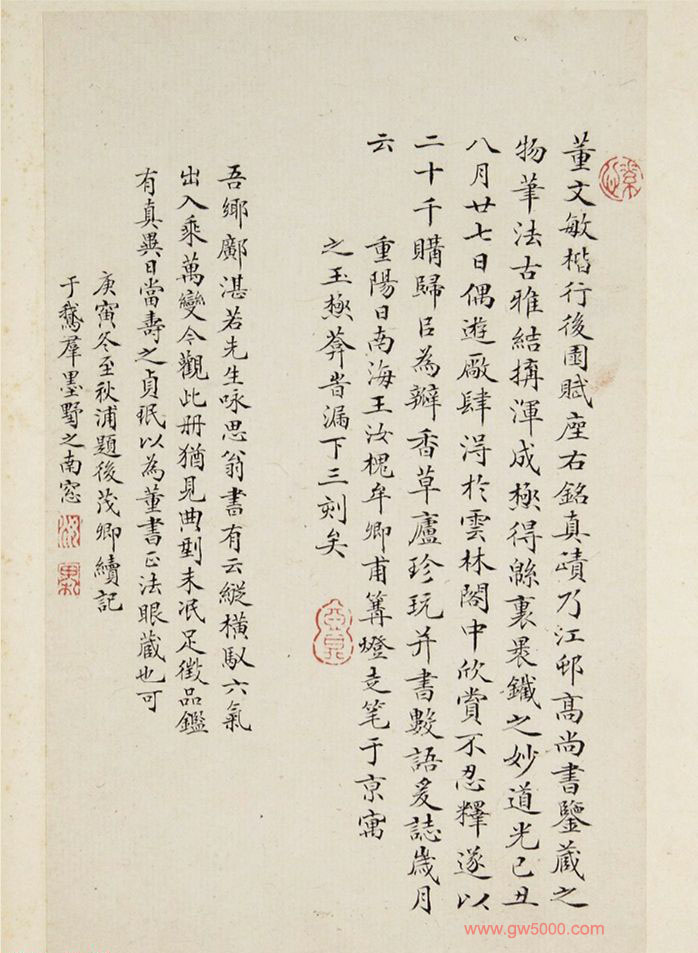 董文敏楷行後園賦座右銘真蹟乃江邨高尚書鑒藏之
物筆法古雅結搆渾成極得緜裏裹鐵之妙道光己丑
八月廿七日偶遊廠肆淂於雲林閣中欣賞不忍釋遂以
二十千購歸臣為瓣香草廬珍玩并書數語爰誌歲月
云
重陽日南海王汝槐牟卿甫篝燈走笔于京寓
之玉極葊旹漏下三刻矣
吾鄉鄺湛若先生咏思翁書有云縱橫馭六氣
出入乘萬變今觀此册猶見典型未泯足徵品鑑
有真異日當壽之貞珉以為董書正法眼藏也可
庚寅冬至秋浦題後茂卿續記
于鵞羣墨墅之南窓
www.gw5000.com